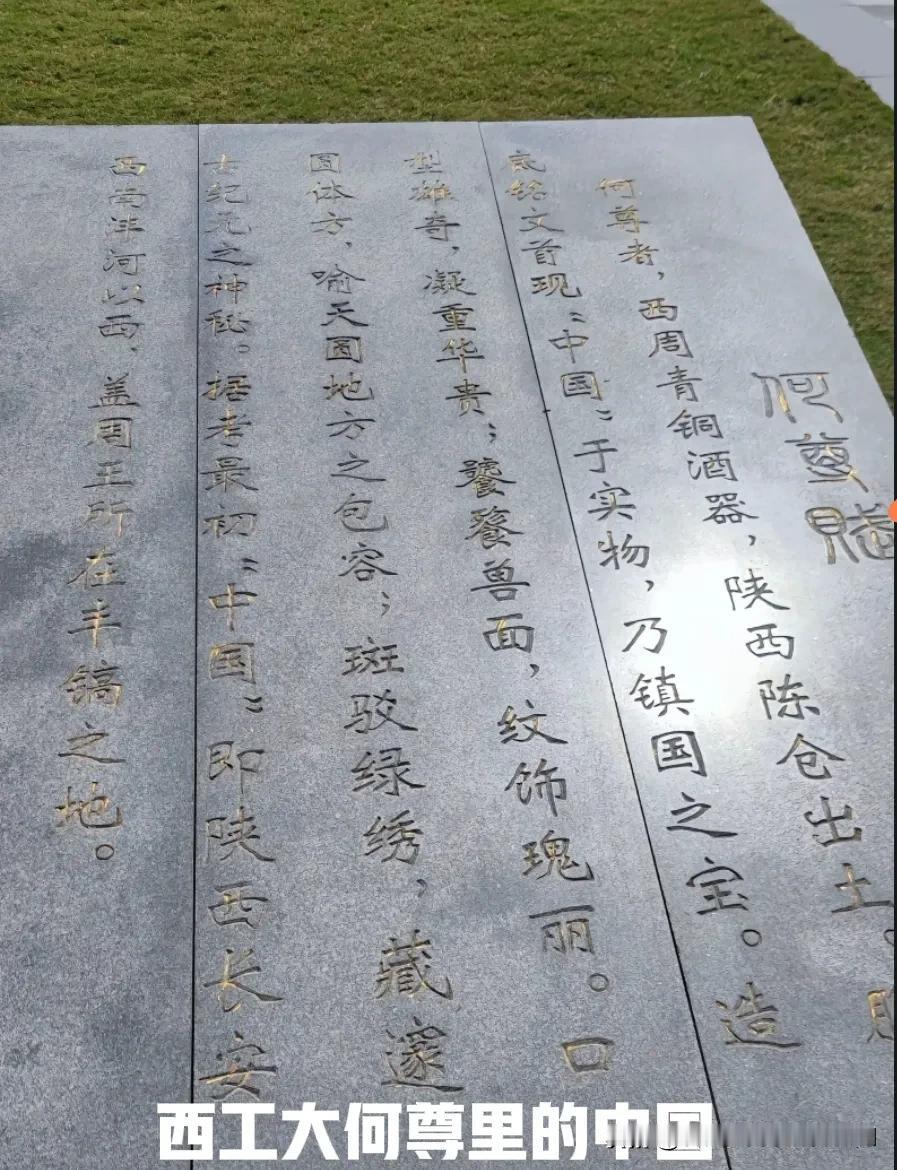 何尊赋
何尊者，西周青铜酒器，陕西陈仓出土。
底铭文首现“中国”于实物，乃镇国之宝。造
型雄奇，凝重华贵；饕餮兽面，纹饰瑰丽。口
圆体方，喻天圆地方之包容；斑驳绿绣，藏邃
纪元之神秘。据考最初“中国”即陕西长安
西安沣河以西，盖周王所在丰镐之地。
西工大何尊里的中国